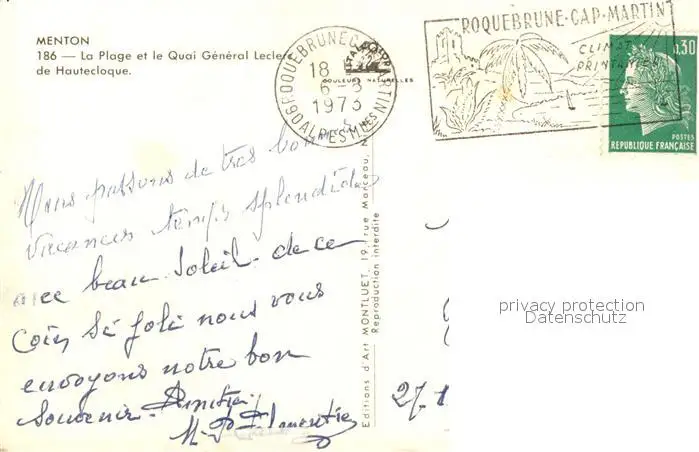 MENTON
186 — La Plage et le Quai Général Leclerc
de Hautecloque.
COULEURS NATURELLES
ROQUEBRUNE CAP MARTIN
18
6-3
1973
06 ALPES MMES
ROQUEBRUNE-CAP-MARTIN
CLIMAT
PRINTANIER
0,30
POSTES
REPUBLIQUE FRANÇAISE
Nous passons de tres bonnes
vacances temps splendide
avec beau soleil. de ce
coin si joli nous vous
envoyons notre bon
Souvenir.
Editions d'Art MONTLUET, 19, rue Marceau,
Reproduction interdite
27.1
privacy protection
Datenschutz